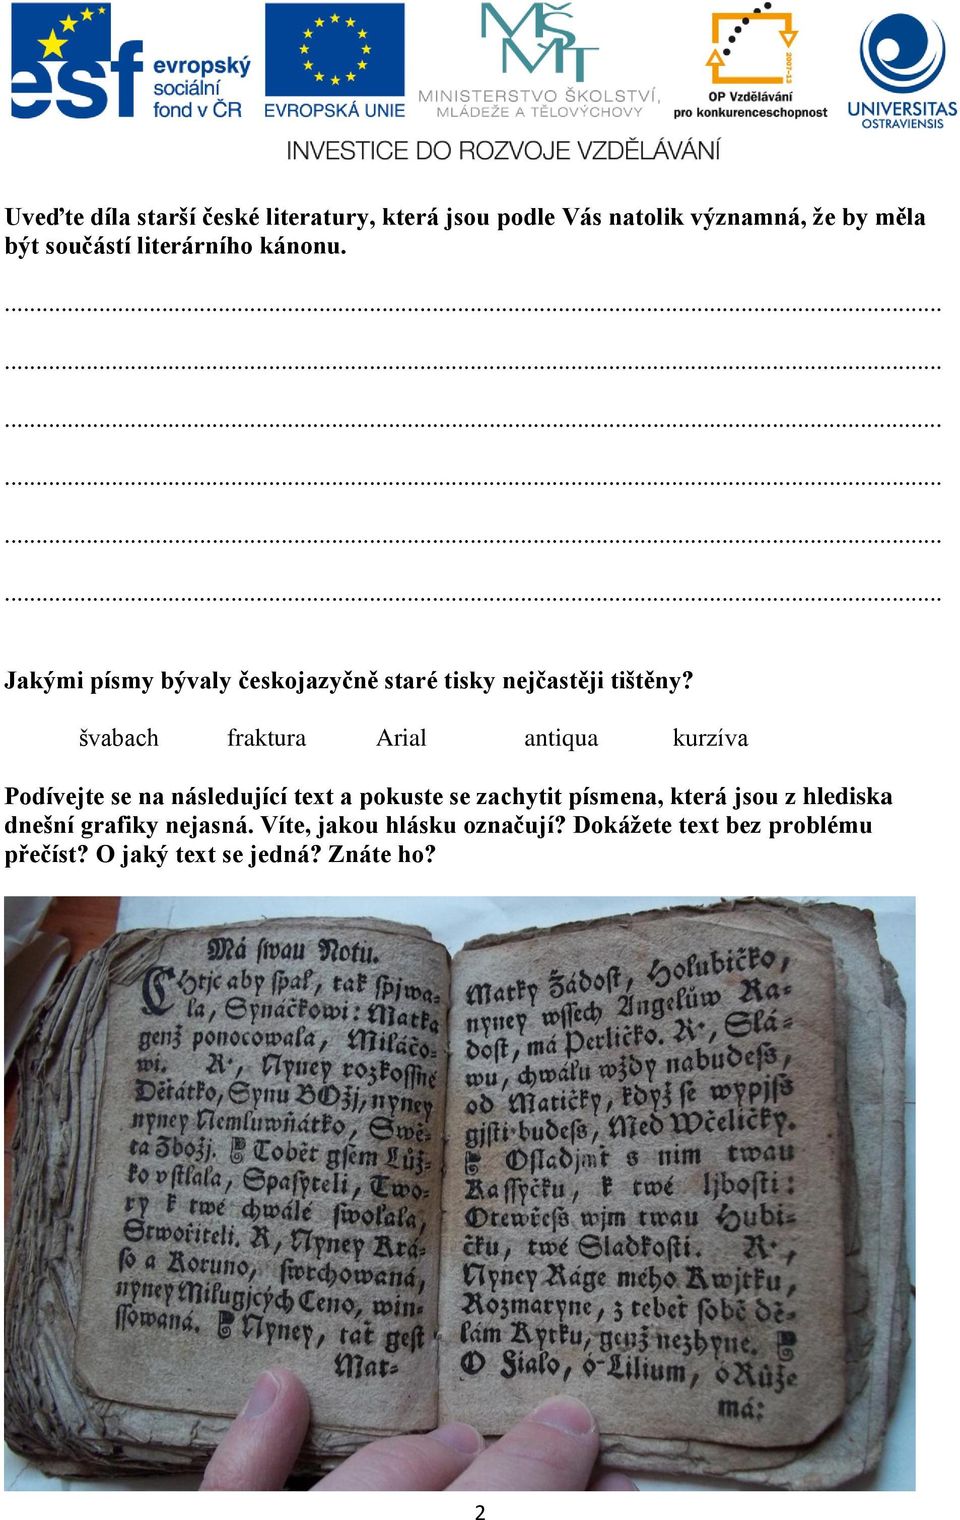 esf
evropský
sociální
fond v ČR
EVROPSKÁ UNIE
MINISTERSTVO ŠKOLSTVÍ,
MLÁDEŽE A TĚLOVÝCHOVY
2007-13
OP Vzdělávání
pro konkurenceschopnost
UNIVERSITAS
OSTRAVIENSIS
INVESTICE DO ROZVOJE VZDĚLÁVÁNÍ
Uveďte díla starší české literatury, která jsou podle Vás natolik významná, že by měla
být součástí literárního kánonu.
...
...
...
...
...
...
Jakými písmy bývaly českojazyčně staré tisky nejčastěji tištěny?
švabach fraktura Arial antiqua kurzíva
Podívejte se na následující text a pokuste se zachytit písmena, která jsou z hlediska
dnešní grafiky nejasná. Víte, jakou hlásku označují? Dokážete text bez problému
přečíst? O jaký text se jedná? Znáte ho?
Má ſwau Notu.
CHtjc aby ſpal, tak ſpjwa-
la, Synáčkowi: Matka
genž ponocowala, Miláčo-
wi. R, Nyney rozkoſſné
Děťátko, Synu BOžj, nyney
nyney Nemluwňátko, Swě-
ta Zbožj. Tobět gſem Lůž-
ko vſtlala, Spaſyteli, Two-
ry k twé chwálé ſwolala,
Stwořiteli. R, Nyney Krá-
ſo a Koruno, ſwrchowaná,
nyney Milugjcých Ceno, win-
ſſowaná. Nyney, tať geſt
Mat-
Matky Žádoſt, Holubičko,
nyney wſſech Angelůw Ra-
doſt, má Perličko. R, Slá-
wu, chwálu wždy nabudeſs,
od Matičky, když ſe wypjſs
gjſti budeſs, Med Wčeličky.
Oſladjmť s nim twau
Kaſſyčku, k twé ljboſti:
Otewřeſs wjm twau Hubi-
čku, twé Sladkoſti. R,
Nyney Ráge mého Kwjtku,
Rozmaryne, z tebeť ſobě dě-
lám Kytku, genž nezhyne.
O Fialo, ó Lilium, ó Růže
má:
2